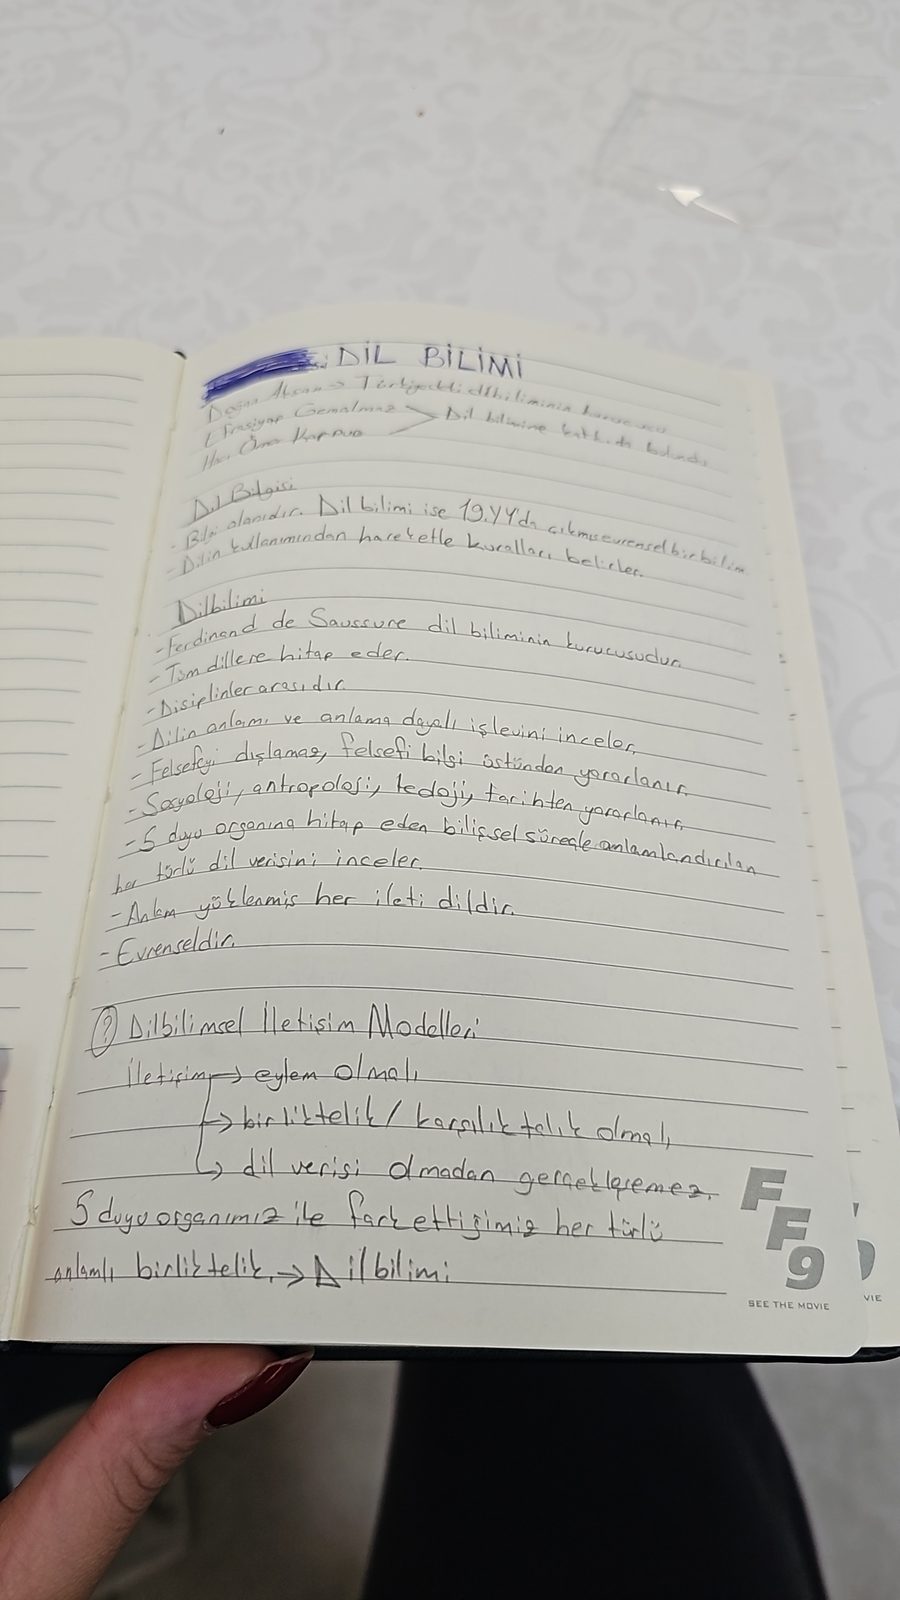 DİL BİLİMİ
Doğan Aksan → Türkiye'deki dilbiliminin kurucusu
Efrasiyap Gemalmaz
Dil bilimine katkıda bulundu
Ömer
Dil Bilgisi
- Bilgi alanıdır. Dil bilimi ise 19.YY'da çıkmış evrensel bir bilim
- Dilin kullanımından hareketle kuralları belirler.
Dilbilimi
- Ferdinand de Saussure dil biliminin kurucusudur.
- Tüm dillere hitap eder.
- Disiplinler arasıdır.
- Dilin anlamı ve anlama dayalı işlevini inceler.
- Felsefeyi dışlamaz, felsefi bilgi üstünden yararlanır.
- Sosyoloji, antropoloji, tarihten yararlanır.
- 5 duyu organına hitap eden bilişsel süreçle anlamlandırılan
her türlü dil verisini inceler.
- Anlam yüklenmiş her ileti dildir.
- Evrenseldir.
? Dilbilimsel İletişim Modelleri
İletişim → eylem olmalı
→ birliktelik / karşılıktalık olmalı
→ dil verisi olmadan gerçekleşemez.
5 duyu organımız ile fark ettiğimiz her türlü
anlamlı birliktelik. → Dilbilimi
FF9
SEE THE MOVIE
VIE